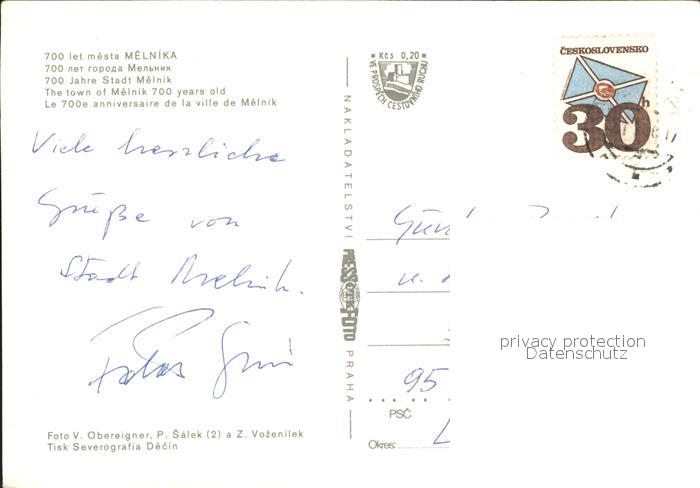 700 let města MĚLNÍKA
700 лет города Мельник
700 Jahre Stadt Mělník
The town of Mělník 700 years old
Le 700e anniversaire de la ville de Mělník
Viele herzliche
Grüße von
Stadt Melnik.
Foto V. Obereigner, P. Šálek (2) a Z. Voženílek
Tisk Severografia Děčín
NAKLADATELSTVÍ PRESSFOTO PRAHA
Kčs 0,20
VE PROSPĚCH CESTOVNÍHO RUCHU
ČESKOSLOVENSKO
30h
95
PSČ
Okres:
privacy protection
Datenschutz